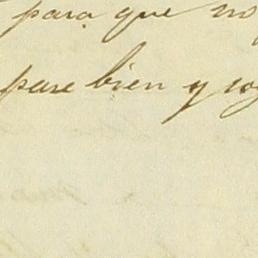 para que no
pase bien y